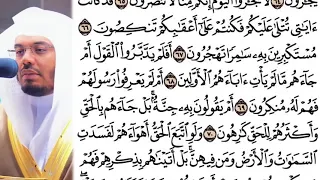 يَجْـَٔرُونَ ٦٤ لَا تَجْـَٔرُوا۟ ٱلْيَوْمَ إِنَّكُم مِّنَّا لَا تُنصَرُونَ ٦٥ قَدْ كَانَتْ
ءَايَٰتِى تُتْلَىٰ عَلَيْكُمْ فَكُنتُمْ عَلَىٰٓ أَعْقَٰبِكُمْ تَنكِصُونَ ٦٦
مُسْتَكْبِرِينَ بِهِۦ سَٰمِرًا تَهْجُرُونَ ٦٧ أَفَلَمْ يَدَّبَّرُوا۟ ٱلْقَوْلَ أَمْ
جَآءَهُم مَّا لَمْ يَأْتِ ءَابَآءَهُمُ ٱلْأَوَّلِينَ ٦٨ أَمْ لَمْ يَعْرِفُوا۟ رَسُولَهُمْ
فَهُمْ لَهُۥ مُنكِرُونَ ٦٩ أَمْ يَقُولُونَ بِهِۦ جِنَّةٌۢ ۚ بَلْ جَآءَهُم بِٱلْحَقِّ
وَأَكْثَرُهُمْ لِلْحَقِّ كَٰرِهُونَ ٧٠ وَلَوِ ٱتَّبَعَ ٱلْحَقُّ أَهْوَآءَهُمْ لَفَسَدَتِ
ٱلسَّمَٰوَٰتُ وَٱلْأَرْضُ وَمَن فِيهِنَّ ۚ بَلْ أَتَيْنَٰهُم بِذِكْرِهِمْ فَهُمْ